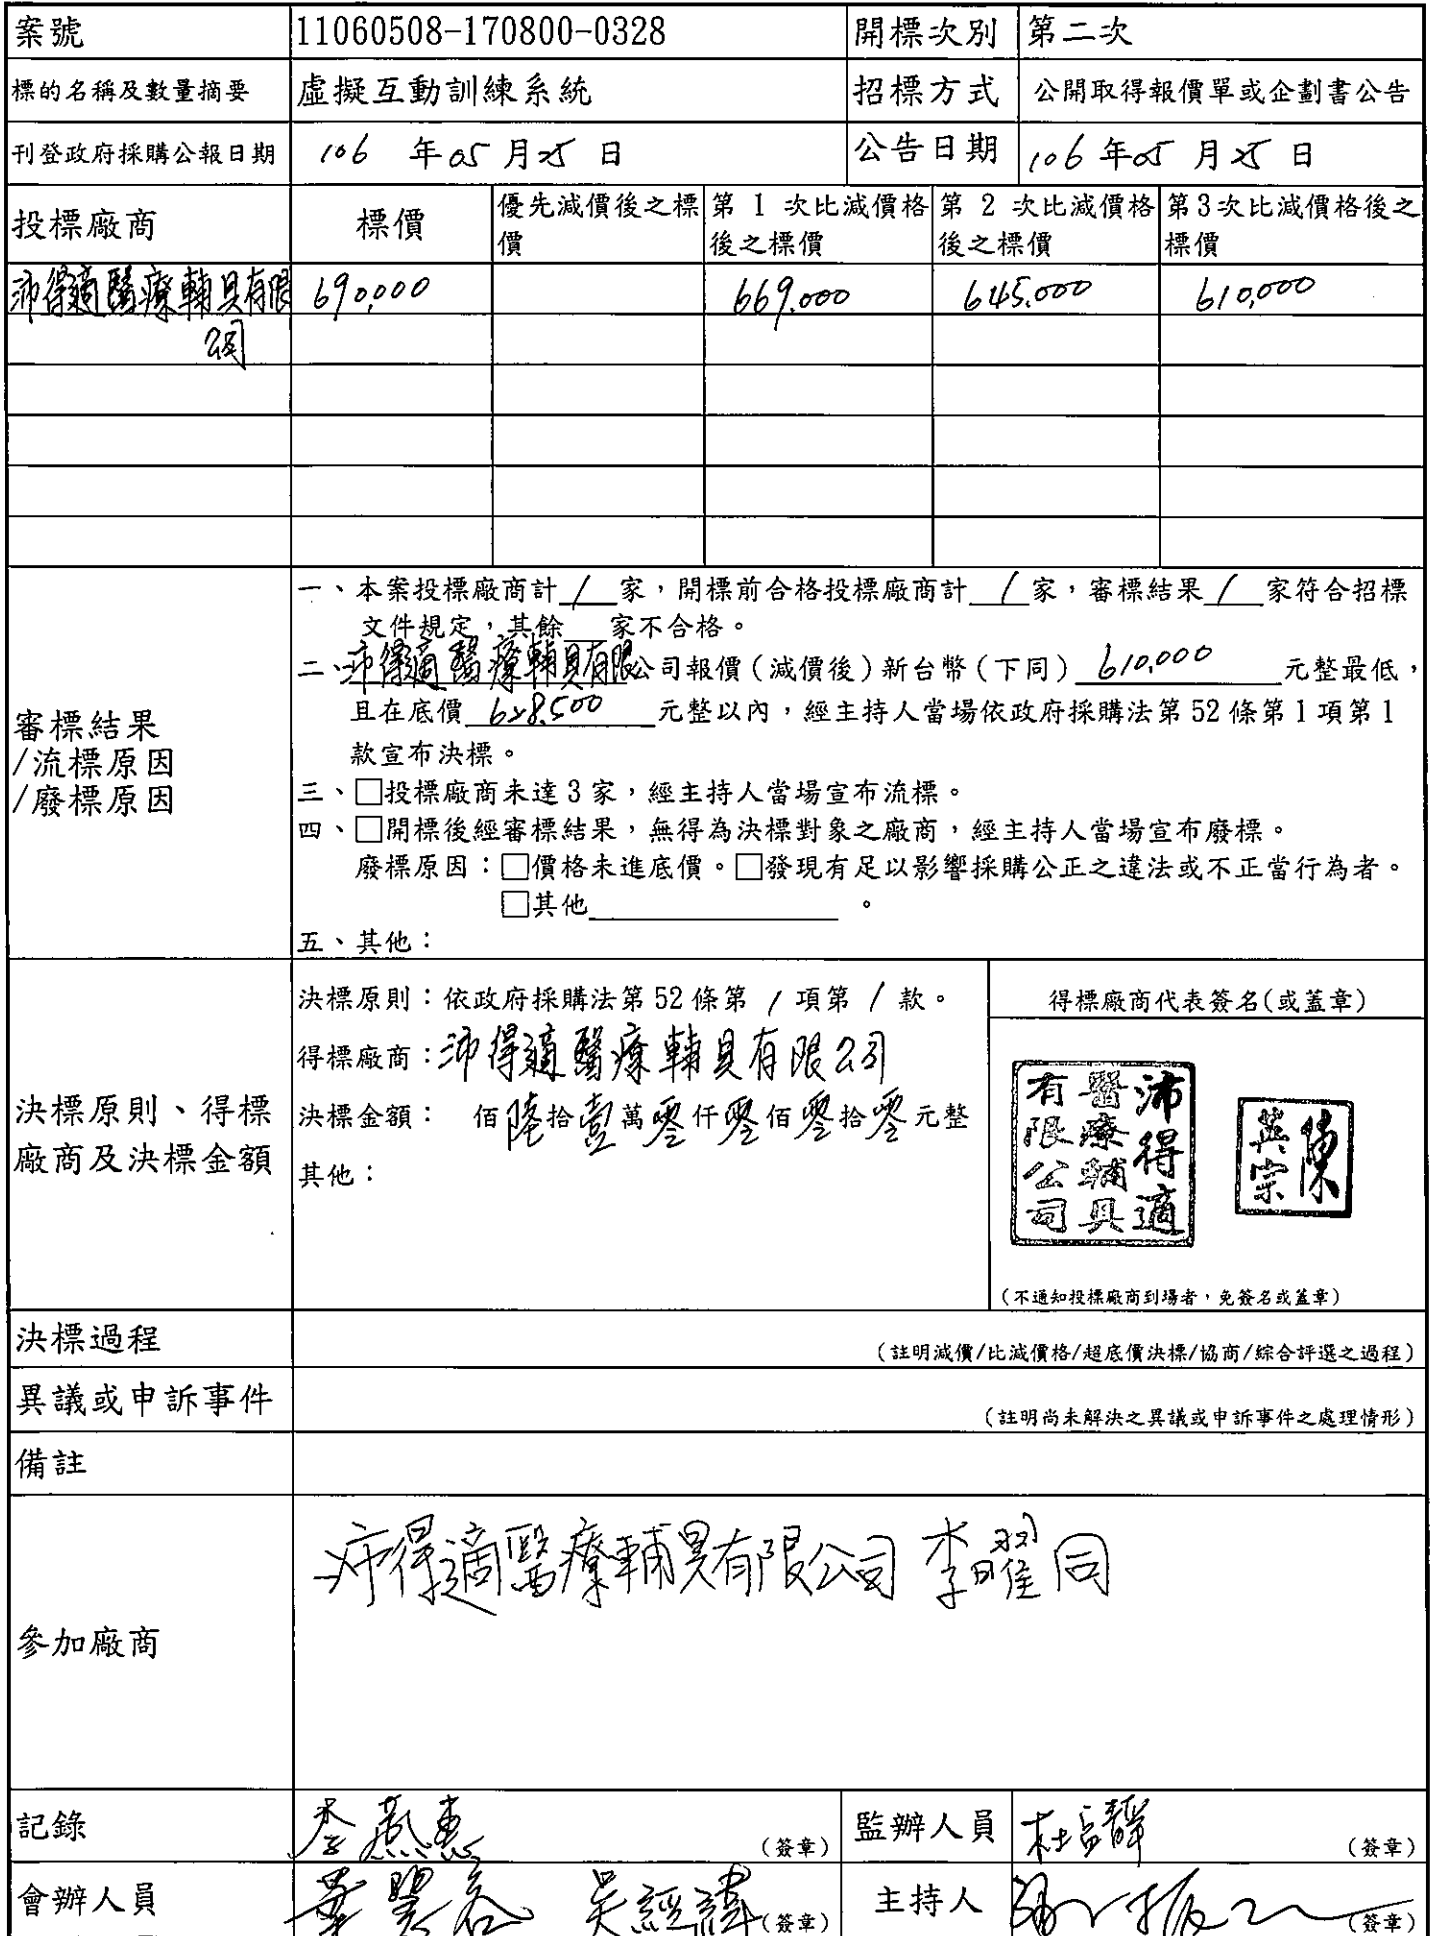 案號 11060508-170800-0328 開標次別 第二次
標的名稱及數量摘要 虛擬互動訓練系統 招標方式 公開取得報價單或企劃書公告
刊登政府採購公報日期 106 年 05 月 25 日 公告日期 106 年 05 月 25 日
投標廠商 標價 優先減價後之標價 第 1 次比減價格後之標價 第 2 次比減價格後之標價 第3次比減價格後之標價
沛得適醫療輔具有限公司 690,000 669,000 645,000 610,000
審標結果
/流標原因
/廢標原因
一、本案投標廠商計 1 家，開標前合格投標廠商計 1 家，審標結果 1 家符合招標
文件規定，其餘 家不合格。
二、沛得適醫療輔具有限公司報價(減價後)新台幣(下同) 610,000 元整最低，
且在底價 628,500 元整以內，經主持人當場依政府採購法第 52 條第 1 項第 1
款宣布決標。
三、□投標廠商未達 3 家，經主持人當場宣布流標。
四、□開標後經審標結果，無得為決標對象之廠商，經主持人當場宣布廢標。
廢標原因：□價格未進底價。□發現有足以影響採購公正之違法或不正當行為者。
□其他 。
五、其他：
決標原則、得標
廠商及決標金額
決標原則：依政府採購法第 52 條第 1 項第 1 款。
得標廠商：沛得適醫療輔具有限公司
決標金額： 佰陸拾壹萬零仟零佰零拾零元整
其他：
得標廠商代表簽名(或蓋章)
沛得適
醫療輔具
有限公司
陳
英宗
(不通知投標廠商到場者，免簽名或蓋章)
決標過程 (註明減價/比減價格/超底價決標/協商/綜合評選之過程)
異議或申訴事件 (註明尚未解決之異議或申訴事件之處理情形)
備註
參加廠商 沛得適醫療輔具有限公司 李曜同
記錄 李燕惠 (簽章) 監辦人員 (簽章)
會辦人員 吳經緯 (簽章) 主持人 (簽章)